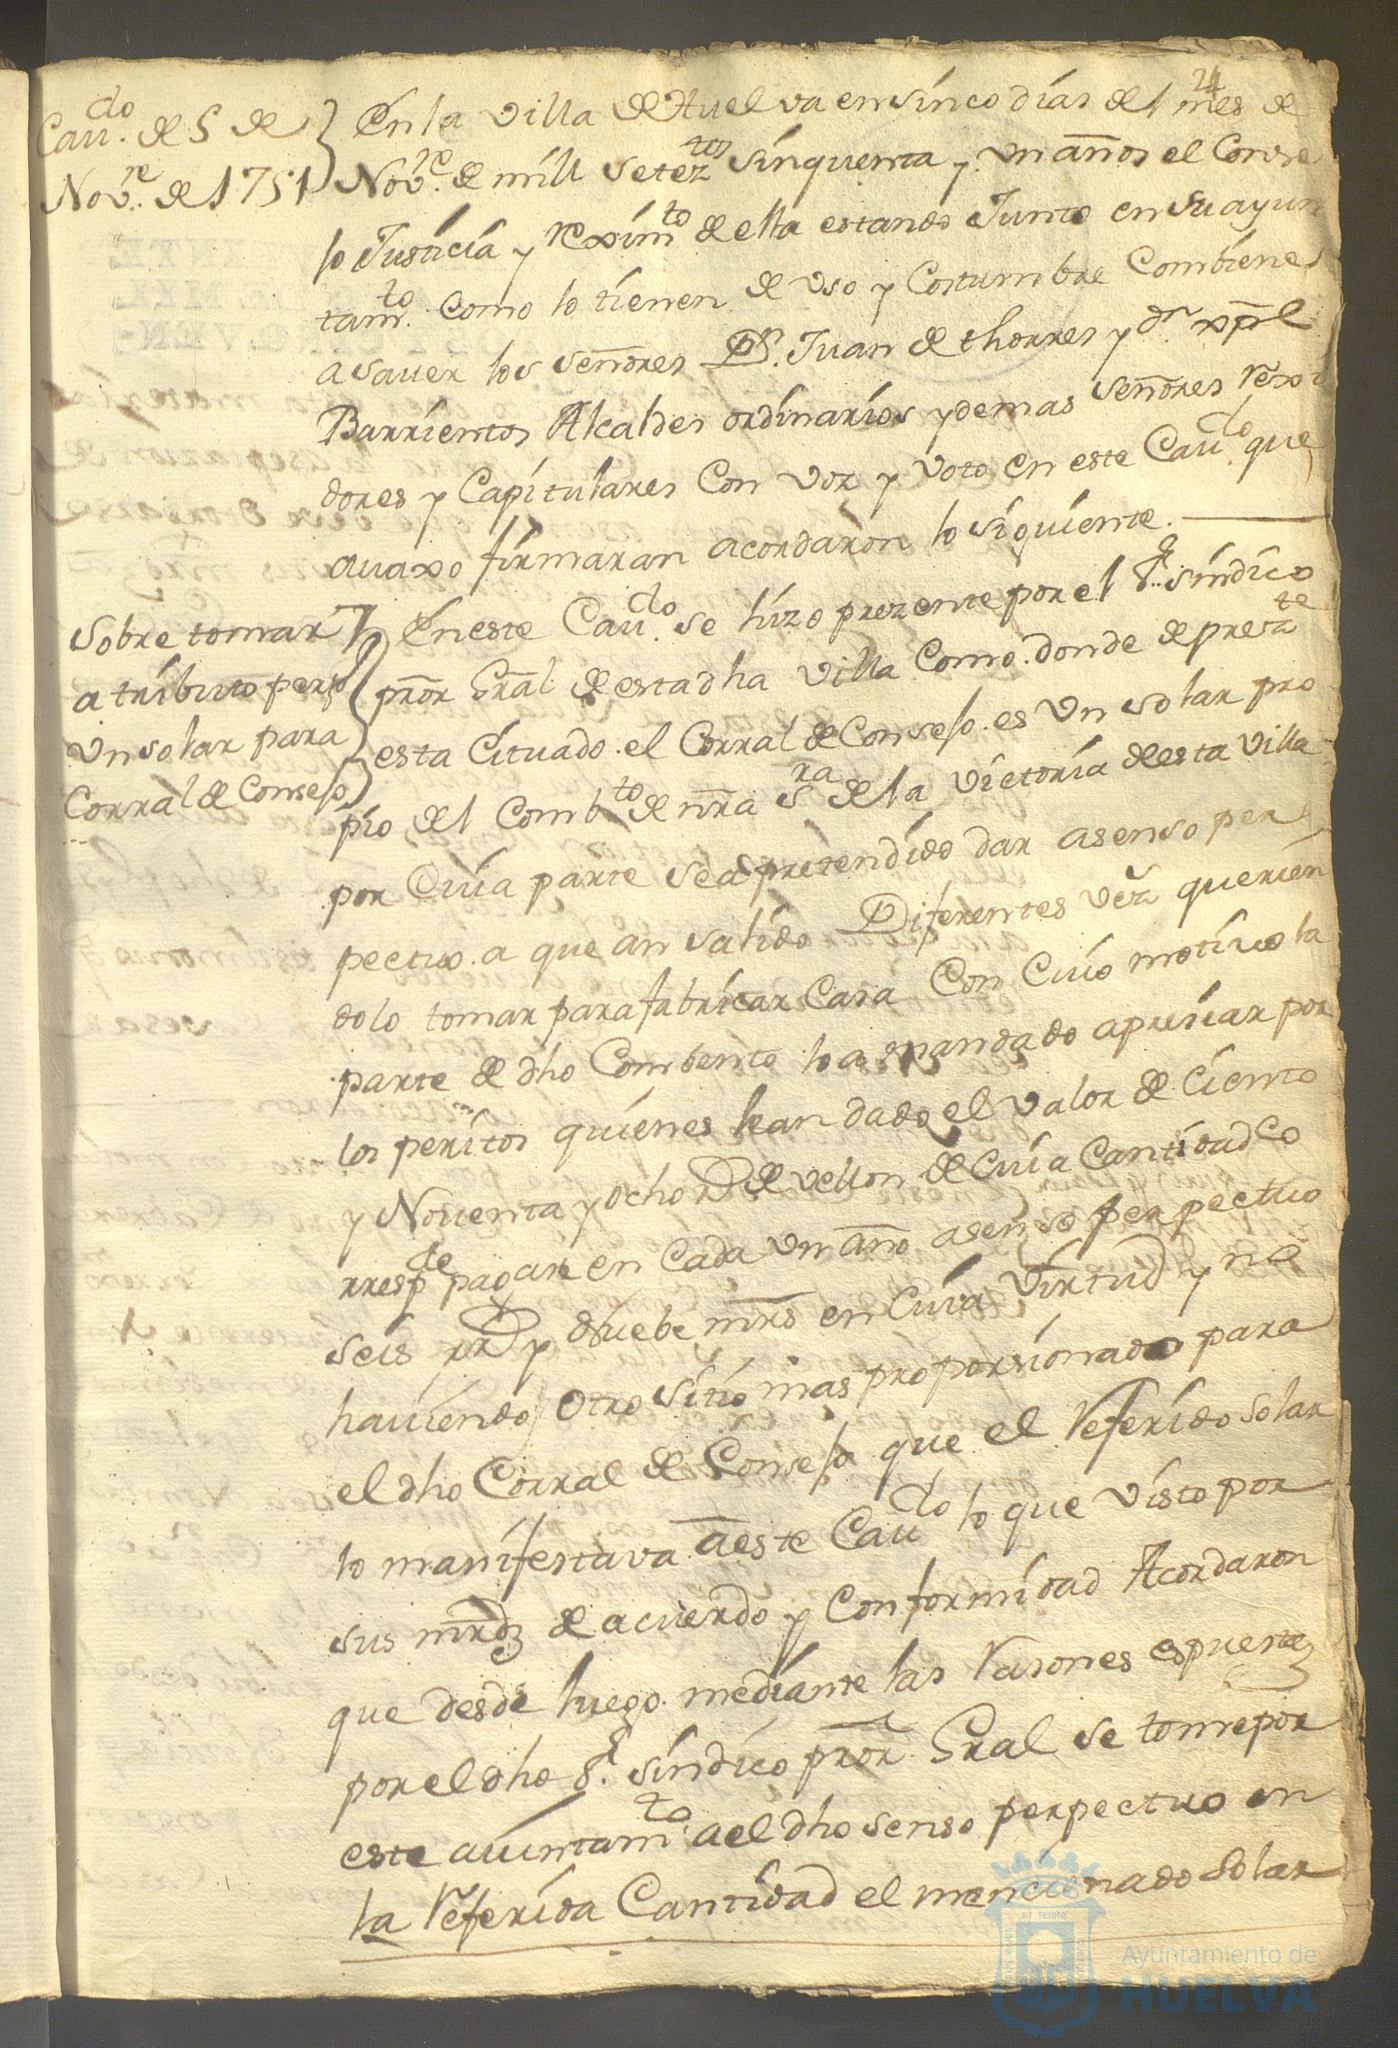 24
Cau.do de 5 de
Nov.re de 1751
En la villa de Huelva en sinco días del mes de
Nov.re de mill setez.tos sinquenta y un años el Conse
jo Justicia y reximto de ella estando Junto en su ayun
tam.to como lo tienen de uso y Costumbre Combiene
a sauer los señores Dn. Juan de thorres y dn. xpl
Barrientos Alcaldes ordinarios y demas señores rexi
dores y Capitulares Con voz y voto en este Cau.do que
auaxo firmaran acordaron lo siguiente.
sobre tomar
a tributo perpo
un solar para
Corral de Consejo
En este Cau.do se hizo prezente por el Sr. síndico
pror Gral de esta dha villa Como donde de preste
esta Cituado el Corral de Consejo es un solar pro
pio del Combto de nra Sra de la Victoria desta villa
por Cuia parte sea pretendido dar asenso per
pectuo a que an salido Diferentes vez querien
dolo tomar para fabricar Casa Con Cuio motiuo la
parte de dho Combento lo a mandado apresiar por
los peritos quienes lean dado el valor de Ciento
y Nouenta y ocho rs de vellon de Cuia Cantidad Co
rrespde pagar en Cada un año asenso perpectuo
seis rrs y nuebe mrs en Cuia Virtud y no
hauiendo otro sitio mas proporsionado para
el dho Corral de Consejo que el referido solar
lo manifestava a este Caudo lo que visto por
sus mrdz de acuerdo y Conformidad Acordaron
que desde luego mediante las rasones espuestaz
por el dho Sr. síndico pror Gral se tome por
este auintamto a el dho senso perpectuo en
la referida Cantidad el mencionado solar
Ayuntamiento de
HUELVA